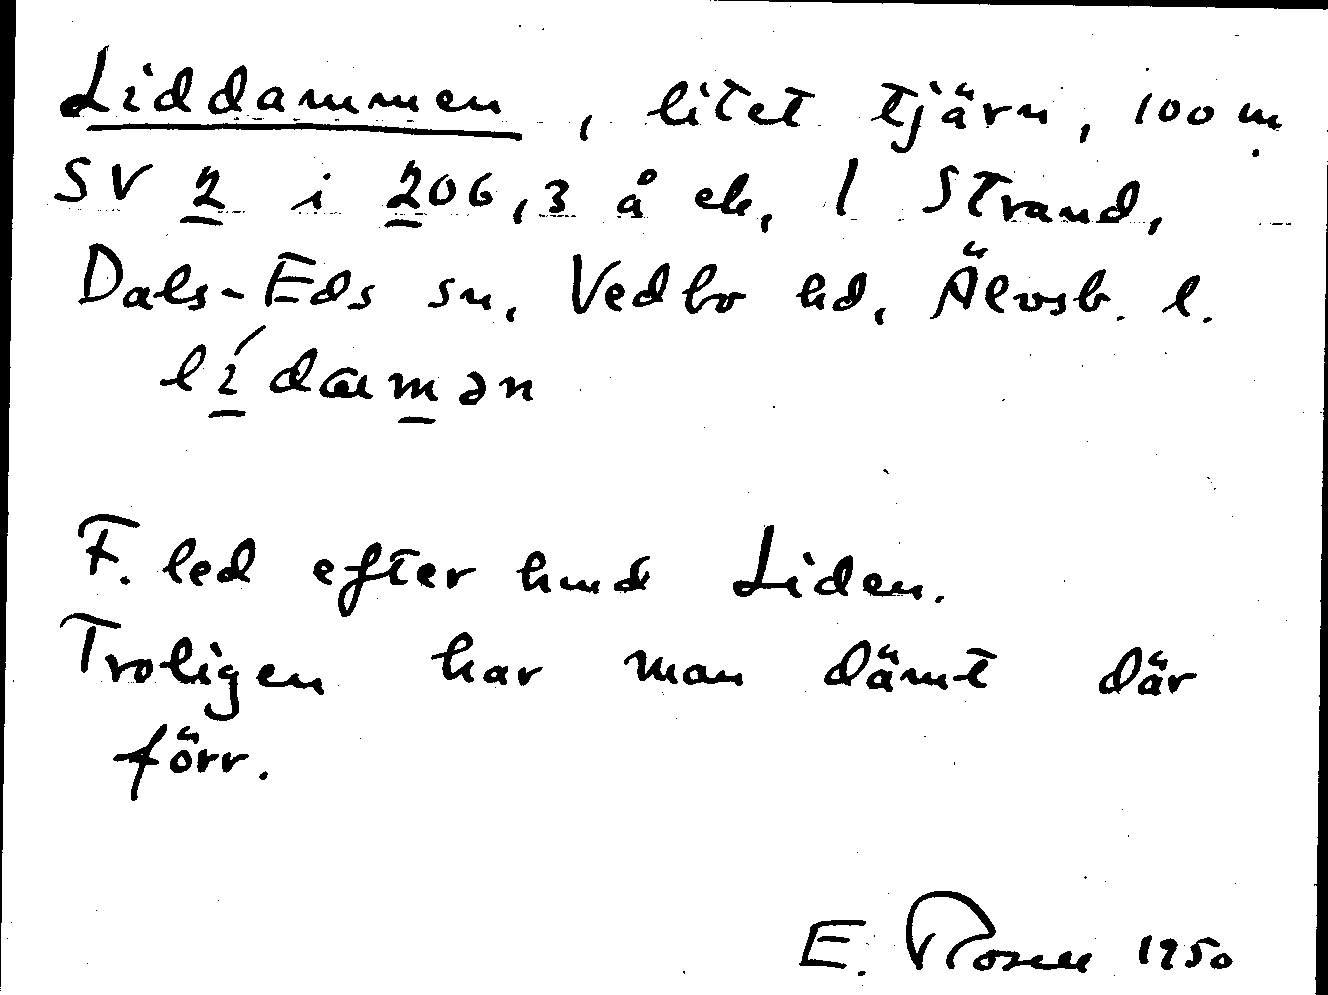 Liddammen, litet tjärn, 100 m
SV 2 i 206,3 å ek, 1 Strand,
Dals-Eds sn, Vedbo hd, Älvsb. l.
lídamən
F. led efter hmd Liden.
Troligen har man dämt där
förr.
E. Rosell 1950